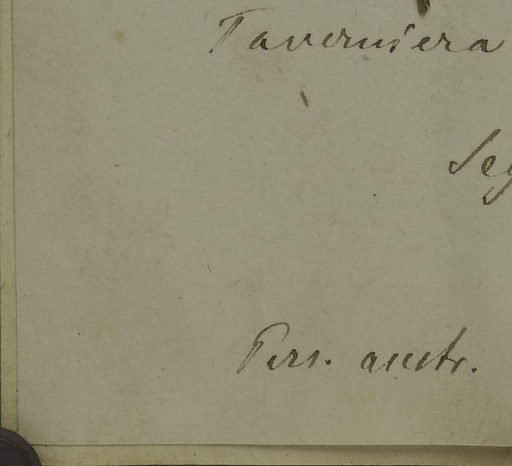 Taverniera
Seg
Pers. austr.